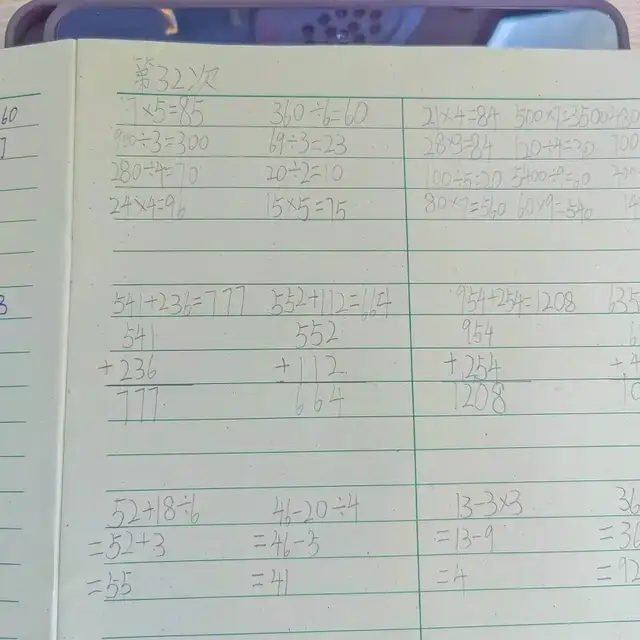 第32次
7×5=85 360÷6=60 21×4=84 500×7=3500
900÷3=300 69÷3=23 28×3=84 120÷4=30 700
280÷4=70 20÷2=10 100÷5=20 5400÷9=60
24×4=96 15×5=75 80×7=560 60×9=540 14
541+236=777 552+112=664 954+254=1208 635
541 552 954 6
+236 +112 +254 +4
777 664 1208 10
52+18÷6 46-20÷4 13-3×3 36
=52+3 =46-5 =13-9 =36
=55 =41 =4 =92
60
7
3